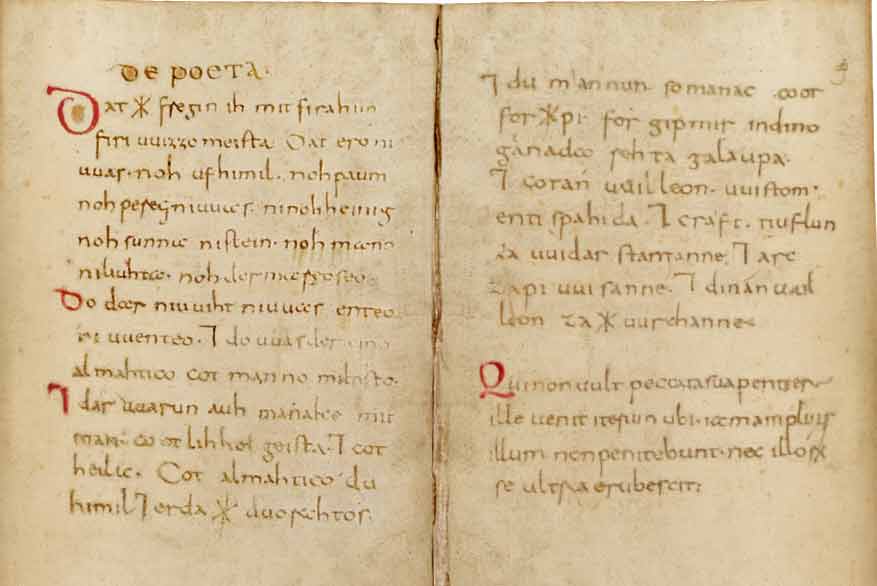 De poeta.
Dat ᚼ fregin ih mit firahim
firi uuizzo meista. Dat ero ni
uuas. noh ufhimil. noh paum
noh pereg ni uuas. ninohheinig
noh sunna nistein. noh mano
niliuhta. noh der marẹoseo.
Do dar niuuiht niuuas enteo
ni uuenteo. ⁊ do uuas der eino
almahtico cot manno miltisto.
⁊ dar uuarun auh manake mit
inan. cootlihhe geista. ⁊ cot
heilac. Cot almahtico du
himil ⁊ erda ᚼ uuorahtos.
⁊ du mannun somanac coot
forᚼpi. for gipmir indino
ganada rehta galaupa.
⁊ cotan uuilleon. uuistom.
enti spahida. ⁊ craft. tiuflun
za uuidar stantanne. ⁊ arc
zapi uuisanne. ⁊ dinan uuil
leon za ᚼ uurchanne
Qui non vult peccata sua penitere
ille venit iterum ubi iam amplius
illum non penitebunt. nec illorꝝ
se ultra erubescit.